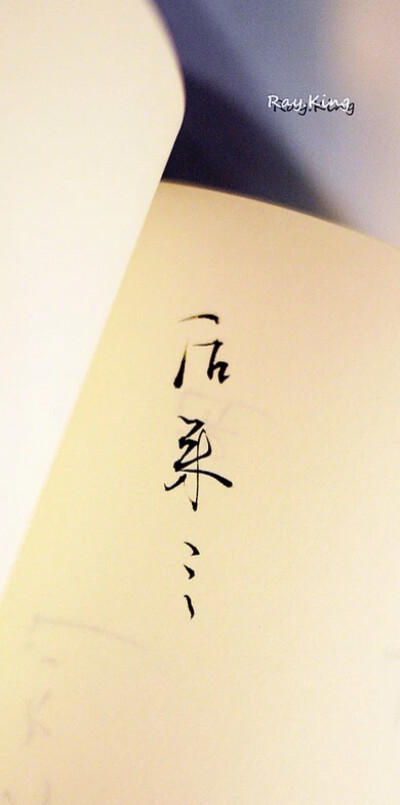 Ray.King
后来…